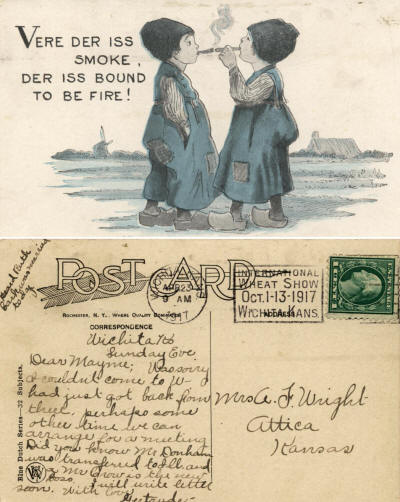 VERE DER ISS
SMOKE,
DER ISS BOUND
TO BE FIRE!
POST CARD
ROCHESTER, N. Y., WHERE QUALITY
CORRESPONDENCE
23
9 AM
1917
INTERNATIONAL
WHEAT SHOW
OCT. 1-13-1917
WICHITA, KANS.
Wichita Ks
Sunday Eve,
Dear Mayme; Was sorry
I couldn't come to W- I
had just got back from
there, perhaps some
other time we can
arrange for a meeting
Did you know Mr Donham
was transferred to
Mr is the new
Boss. I will write letter
soon. With love
Mrs A. F. Wright
Attica
Kansas
Blue Dutch Series—32 Subjects.